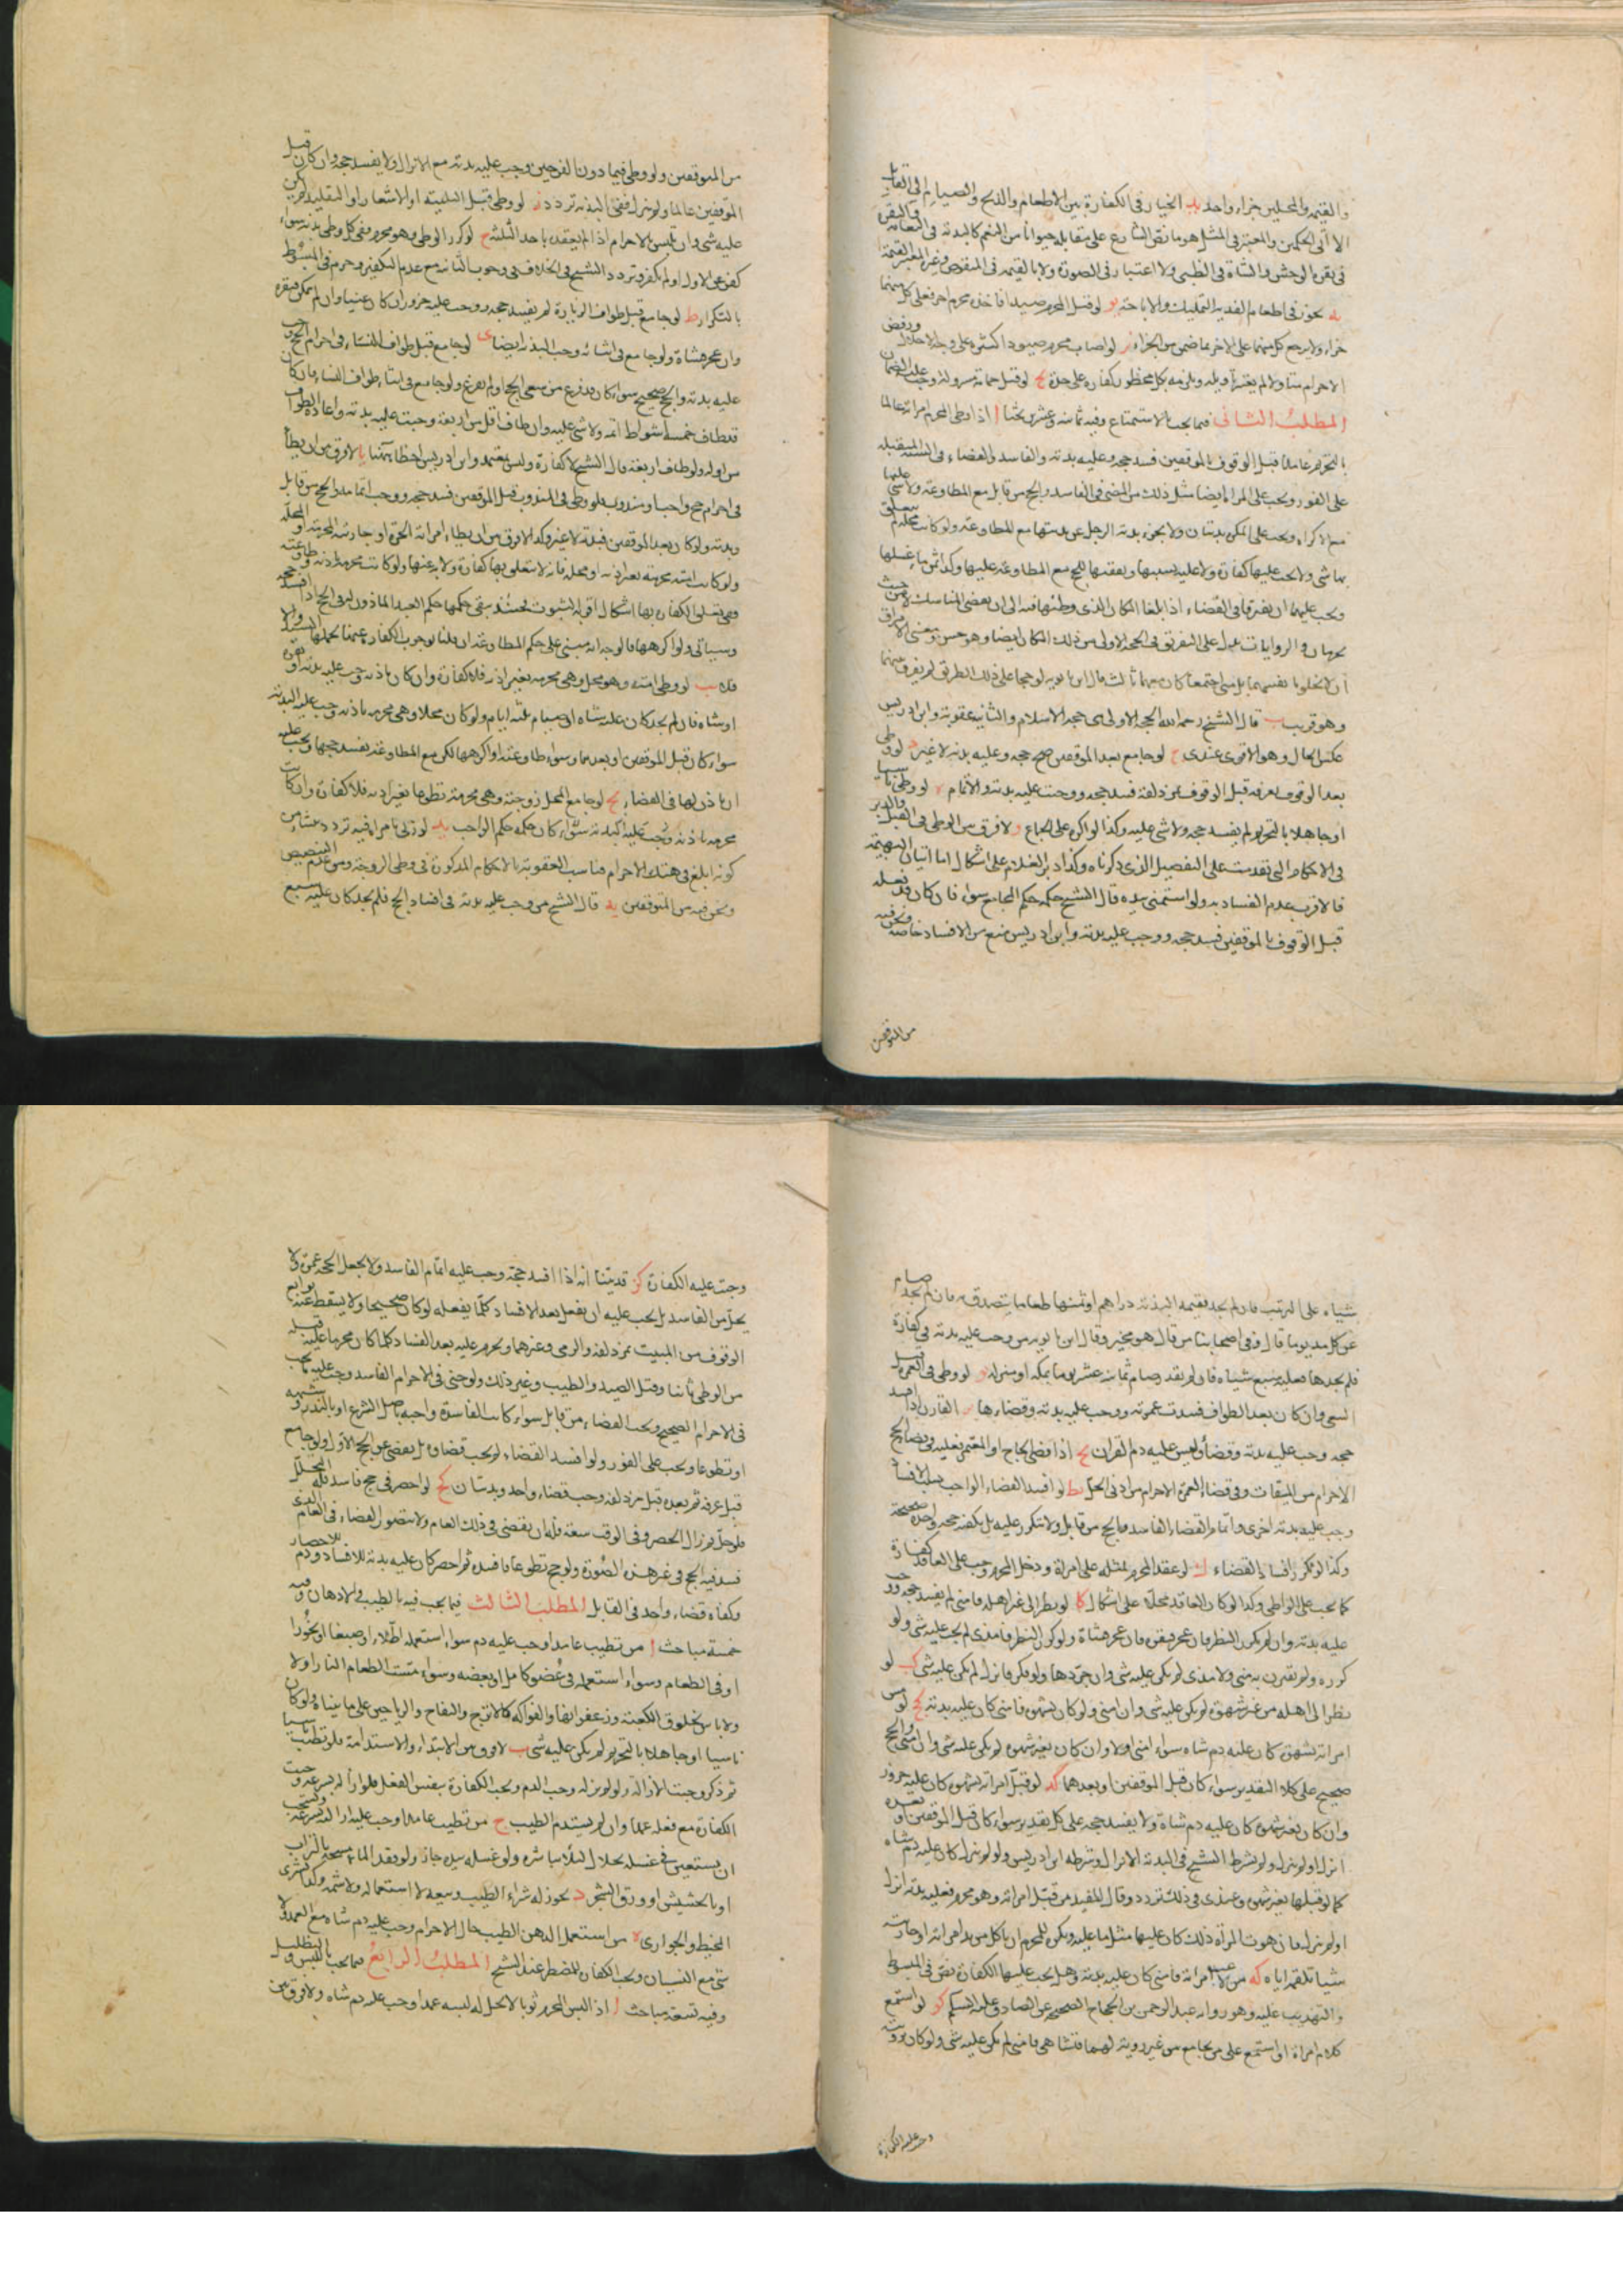 والقيمة والمحلين جزاء واحد يد الخيار في الكفارة بين الاطعام والذبح والصيام الى القاتل
الا الى الحكمين والمعتبر في المثل هو ما نص الشارع على مقابله حيوانا من النعم كالبدنة في النعامة والبقرة
في بقرة الوحش والشاة في الظبي ولا اعتبار في الصورة ولا بالقيمة في المنصوص وغير المعتبر القيمة
يه يجوز في اطعام الفدية التمليك والاباحة يو لو قتل المحرم صيدا فاخذه محرم اخر فعلى كل منهما
جزاء ولا يرجع كل منهما على الاخر بما ضمن من الجزاء يز لو اصاب محرم صيودا كثيرة على وجه الاحلال ورفض
الاحرام متأولا لم يعتبر تأويله ويلزمه بكل محظور كفارة على حدة يح لو قتل حمامة مسرولة وجب عليه الضمان
المطلب الثاني فيما يجب بالاستمتاع وفيه ثمانية وعشرين بحثا ا اذا وطئ المحرم امراته عالما
بالتحريم عامدا قبل الوقوف بالموقفين فسد حجه وعليه بدنة واتمام الفاسد والقضاء في السنة المقبلة
على الفور ويجب على المراة ايضا مثل ذلك من المضي في الفاسد والحج من قابل مع المطاوعة ولا شئ عليها
مع الاكراه ويجب على المكره بدنتان ولا يجزء بدنة الرجل عن بدنتها مع المطاوعة ولو كانت محلة لم يتعلق
بها شئ ولا يجب عليها كفارة ولا عليه بسببها ونفقتها للحج مع المطاوعة عليها وكذا ثمن ماء غسلها
ويجب عليهما ان يفترقا في القضاء اذا بلغا المكان الذي وطئها فيه الى ان يقضى المناسك من حيث
يحرمان والروايات تدل على التفريق في الحجة الاولى من ذلك المكان ايضا وهو حسن ومعنى الافتراق
ان لا يخلوا بانفسهما بل متى اجتمعا كان معهما ثالث قال ابن بابويه لو حجا على ذلك الطريق لم يفرق بينهما
وهو قريب ب قال الشيخ رحمه الله الحجة الاولى هي حجة الاسلام والثانية عقوبة وابن ادريس
عكس الحال وهو الاقوى عندي ج لو جامع بعد الموقفين صح حجه وعليه بدنة لا غير د لو وطئ
بعد الوقوف بعرفة قبل الوقوف بمزدلفة فسد حجه ووجبت عليه بدنة والاتمام ه لو وطئ ناسيا
او جاهلا بالتحريم لم يفسد حجه ولا شئ عليه وكذا لو اكره على الجماع و لا فرق بين الوطئ في القبل والدبر
في الاحكام التي تقدمت على التفصيل الذي ذكرناه وكذا دبر الغلام على اشكال اما اتيان البهيمة
فالاقرب عدم الفساد به ولو استمنى بيده قال الشيخ حكمه حكم المجامع سواء فان كان قد فعله
قبل الوقوف بالموقفين فسد حجه ووجب عليه بدنة وابن ادريس منع من الافساد خاصة ونحن فيه
من المتوقفين
من المتوقفين ولو وطئ فيما دون الفرجين وجب عليه بدنة مع الانزال ولا يفسد حجه وان كان قبل
الموقفين عالما ولو لم ينزل ففي البدنة تردد ز لو وطئ قبل التلبية او الاشعار او التقليد لم يكن
عليه شئ وان تلبس الاحرام اذ لم ينعقد باحد الثلثة ح لو كرر الوطئ وهو محرم ففي كل وطئ بدنة سواء
كفر عن الاول او لم يكفر وتردد الشيخ في الخلاف في وجوب الثانية مع عدم التكفير وجزم في المبسوط
بالتكرار ط لو جامع قبل طواف الزيارة لم يفسد حجه ووجب عليه جزور ان كان غنيا وان لم يمكن فبقرة
وان عجز فشاة ولو جامع في اثنائه وجب البدنة ايضا ى لو جامع قبل طواف النساء في احرام الحج وجب
عليه بدنة والحج صحيح سواء كان قد فرغ من سعي الحج او لم يفرغ ولو جامع في اثناء طواف النساء فان كان
قد طاف خمسة اشواط اتمه ولا شئ عليه وان طاف اقل من اربعة وجبت عليه بدنة واعادة الطواف
من اوله ولو طاف اربعة قال الشيخ لا كفارة وليس بمعتمد وابن ادريس اخطأ هيهنا يا لا فرق بين ان يطأ
في احرام حج واجب او مندوب فلو وطئ في المندوب قبل الموقفين فسد حجه ووجب اتمامه والحج من قابل
وبدنة ولو كان بعد الموقفين فبدنة لا غير وكذا لا فرق بين ان يطاء امراته الحرة او جاريته المحرمة او المحلة
ولو كانت امته محرمة بغير اذنه او محلة فانه لا يتعلق بها كفارة ولا به عنها ولو كانت محرمة باذنه طاوعته
ففي تعلق الكفارة بها اشكال اقربه الثبوت فحينئذ يبقى حكمها حكم العبد الماذون له في الحج اذا افسد حجه
وسيأتي ولو اكرهها فالوجه انه مبني على حكم المطاوعة ان قلنا بوجوب الكفارة عنها تحملها السيد والا
فلا يب لو وطئ امته وهو محل وهي محرمة بغير اذنه فلا كفارة وان كان باذنه وجب عليه بدنة او بقرة
او شاة فان لم يجد كان عليه شاة او صيام ثلثة ايام ولو كان محلا وهي محرمة باذنه وجب عليه البدنة
سواء كان قبل الموقفين او بعدهما وسواء طاوعته او اكرهها لكن مع المطاوعة يفسد حجها ويجب عليه
ان ياذن لها في القضاء يج لو جامع المحل زوجته وهي محرمة تطوعا بغير اذنه فلا كفارة وان كانت
محرمة باذنه وجبت عليه كبدنة سواء كان حكمه حكم الواجب يد لو زنى بامراة فيه تردد ينشاء من
كونه ابلغ في هتك الاحرام فناسب العقوبة بالاحكام المذكورة في وطئ الزوجة ومن عدم التنصيص
ونحن فيه من المتوقفين يه قال الشيخ من وجب عليه بدنة في افساد الحج فلم يجد كان عليه سبع
شياه على الترتيب فان لم يجد فقيمة البدنة دراهم او ثمنها طعاما يتصدق به فان لم يجد صام
عن كل مد يوما قال وفي اصحابنا من قال هو مخير وقال ابن بابويه من وجب عليه بدنة في كفارة
فلم يجدها فعليه سبع شياه فان لم يقدر صام ثمانية عشر يوما بمكة او منزله يو لو وطئ في العمرة قبل
السعي وان كان بعد الطواف فسدت عمرته ووجب عليه بدنة وقضاءها يز القارن اذا افسد
حجه وجب عليه بدنة وقضاء وليس عليه دم القران يح اذا قضى الحاج او المعتمر فعليه في قضاء الحج
الاحرام من الميقات وفي قضاء العمرة الاحرام من ادنى الحل يط لو افسد القضاء الواجب بسبب الافساد
وجب عليه بدنة اخرى واتمام القضاء الفاسد والحج من قابل ولا تتكرر عليه بل يكفيه حجة واحدة صحيحة
وكذا لو تكرر افساد القضاء ك لو عقد المحرم لمثله على امراة ودخل المحرم وجب على العاقد كفارة
كما يجب على الواطي وكذا لو كان العاقد محلا على اشكال كا لو نظر الى غير اهله فامنى لم يفسد حجه ووجب
عليه بدنة وان لم يكرر النظر فان عجز فبقرة فان عجز فشاة ولو كرر النظر فامذى لم يجب عليه شئ ولو
كرره ولم يقترن به مني ولا مذي لم يكن عليه شئ وان جردها ولو فكر فانزل لم يكن عليه شئ كب لو
نظر الى اهله من غير شهوة لم يكن عليه شئ وان امنى ولو كان بشهوة فامنى كان عليه بدنة كج لو مس
امراته بشهوة كان عليه دم شاة سواء امنى اولا وان كان بغير شهوة لم يكن عليه شئ وان امنى والحج
صحيح على كلا التقديرين سواء كان قبل الموقفين او بعدهما كد لو قبل امراته بشهوة كان عليه جزور
وان كان بغير شهوة كان عليه دم شاة ولا يفسد حجه على كل تقدير سواء كان قبل الموقفين او بعده
انزل او لم ينزل ولم يشرط الشيخ في البدنة الانزال وشرطه ابن ادريس ولو لم ينزل كان عليه دم شاة
كما لو قبلها بغير شهوة وعندي في ذلك تردد وقال المفيد من قبل امراته وهو محرم فعليه بدنة انزل
او لم ينزل فان هوت المراة ذلك كان عليها مثل ما عليه ويكره للمحرم ان ياكل من يد امراته او جاريته
شيئا تلقمه اياه كه من لاعب امراته فامنى كان عليه بدنة وهل يجب عليها الكفارة نص في المبسوط
والتهذيب عليه وهو رواية عبد الرحمن بن الحجاج الصحيحة عن الصادق عليه السلم كو لو استمع
كلام امراة او استمع على من يجامع من غير روية لهما فتشاهى فامنى لم يكن عليه شئ ولو كان بروية
وجبت عليه الكفارة
وجبت عليه الكفارة كز قد بينا انه اذا افسد حجة وجب عليه اتمام الفاسد ولا يجعل الحجة عمرة ولا
يحل من الفاسد بل يجب عليه ان يفعل بعد الافساد كلما يفعله لو كان صحيحا ولا يسقط عنه توابع
الوقوف من المبيت بمزدلفة والرمي وغيرهما ويحرم عليه بعد الفساد كلما كان محرما عليه قبله
من الوطئ ثانيا وقتل الصيد والطيب وغير ذلك ولو جنى في الاحرام الفاسد وجب عليه ما يجب
في الاحرام الصحيح ويجب القضاء من قابل سواء كانت الفاسدة واجبة باصل الشرع او بالنذر وشبهه
او تطوعا ويجب على الفور ولو افسد القضاء لم يجب قضاؤه بل يقضي عن الحج الاول ولو جامع
قبل عرفة ثم بعده قبل مزدلفة وجب قضاء واحد وبدنتان كح لو احصر في حج فاسد فله التحلل
فلو حل ثم زال الحصر وفي الوقت سعة فله ان يقضي في ذلك العام ولا يتصور القضاء في العام الذي
فسد فيه الحج في غير هذه الصورة ولو حج تطوعا فافسده ثم احصر كان عليه بدنة للافساد ودم للاحصار
وكفاه قضاء واحد في القابل المطلب الثالث فيما يجب فيه بالطيب والادهان وفيه
خمسة مباحث ا من تطيب عامدا وجب عليه دم سواء استعمله اطلاء او صبغا او بخورا
او في الطعام وسواء استعمله في عضو كامل او بعضه وسواء مست الطعام النار اولا
ولا باس بخلوق الكعبة وزعفرانها والفواكه كالاترج والتفاح والرياحين على ما بيناه ولو كان
ناسيا او جاهلا بالتحريم لم يكن عليه شئ ب لا فرق بين الابتداء والاستدامة فلو تطيب ناسيا
ثم ذكر وجبت الازالة ولو لم يزله وجب الدم ويجب الكفارة بنفس الفعل فلو ازاله بسرعة وجبت
الكفارة مع فعله عمدا وان لم يستدم الطيب ج من تطيب عامدا وجب عليه ازالته بسرعة ويستحب
ان يستعين في غسله بحلال لئلا يباشره ولو غسله بيده جاز ولو فقد الماء مسحه بالتراب
او بالحشيش او ورق الشجر د يجوز له شراء الطيب وبيعه لا استعماله ولا شمه وكذا يشترى
المخيط والجواري ه من استعمل الدهن الطيب حال الاحرام وجب عليه دم شاة مع العمد ولا
شئ مع النسيان ويجب الكفارة للمضطر عند الشيخ المطلب الرابع فيما يجب باللبس والتظليل
وفيه تسعة مباحث ا اذا لبس المحرم ثوبا لا يحل له لبسه عمدا وجب عليه دم شاة ولا فرق بين